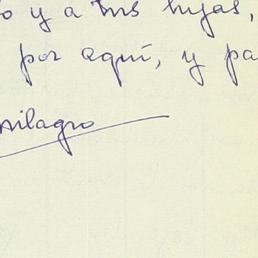 o y a tus hijas,
por aquí, y pa
Milagro